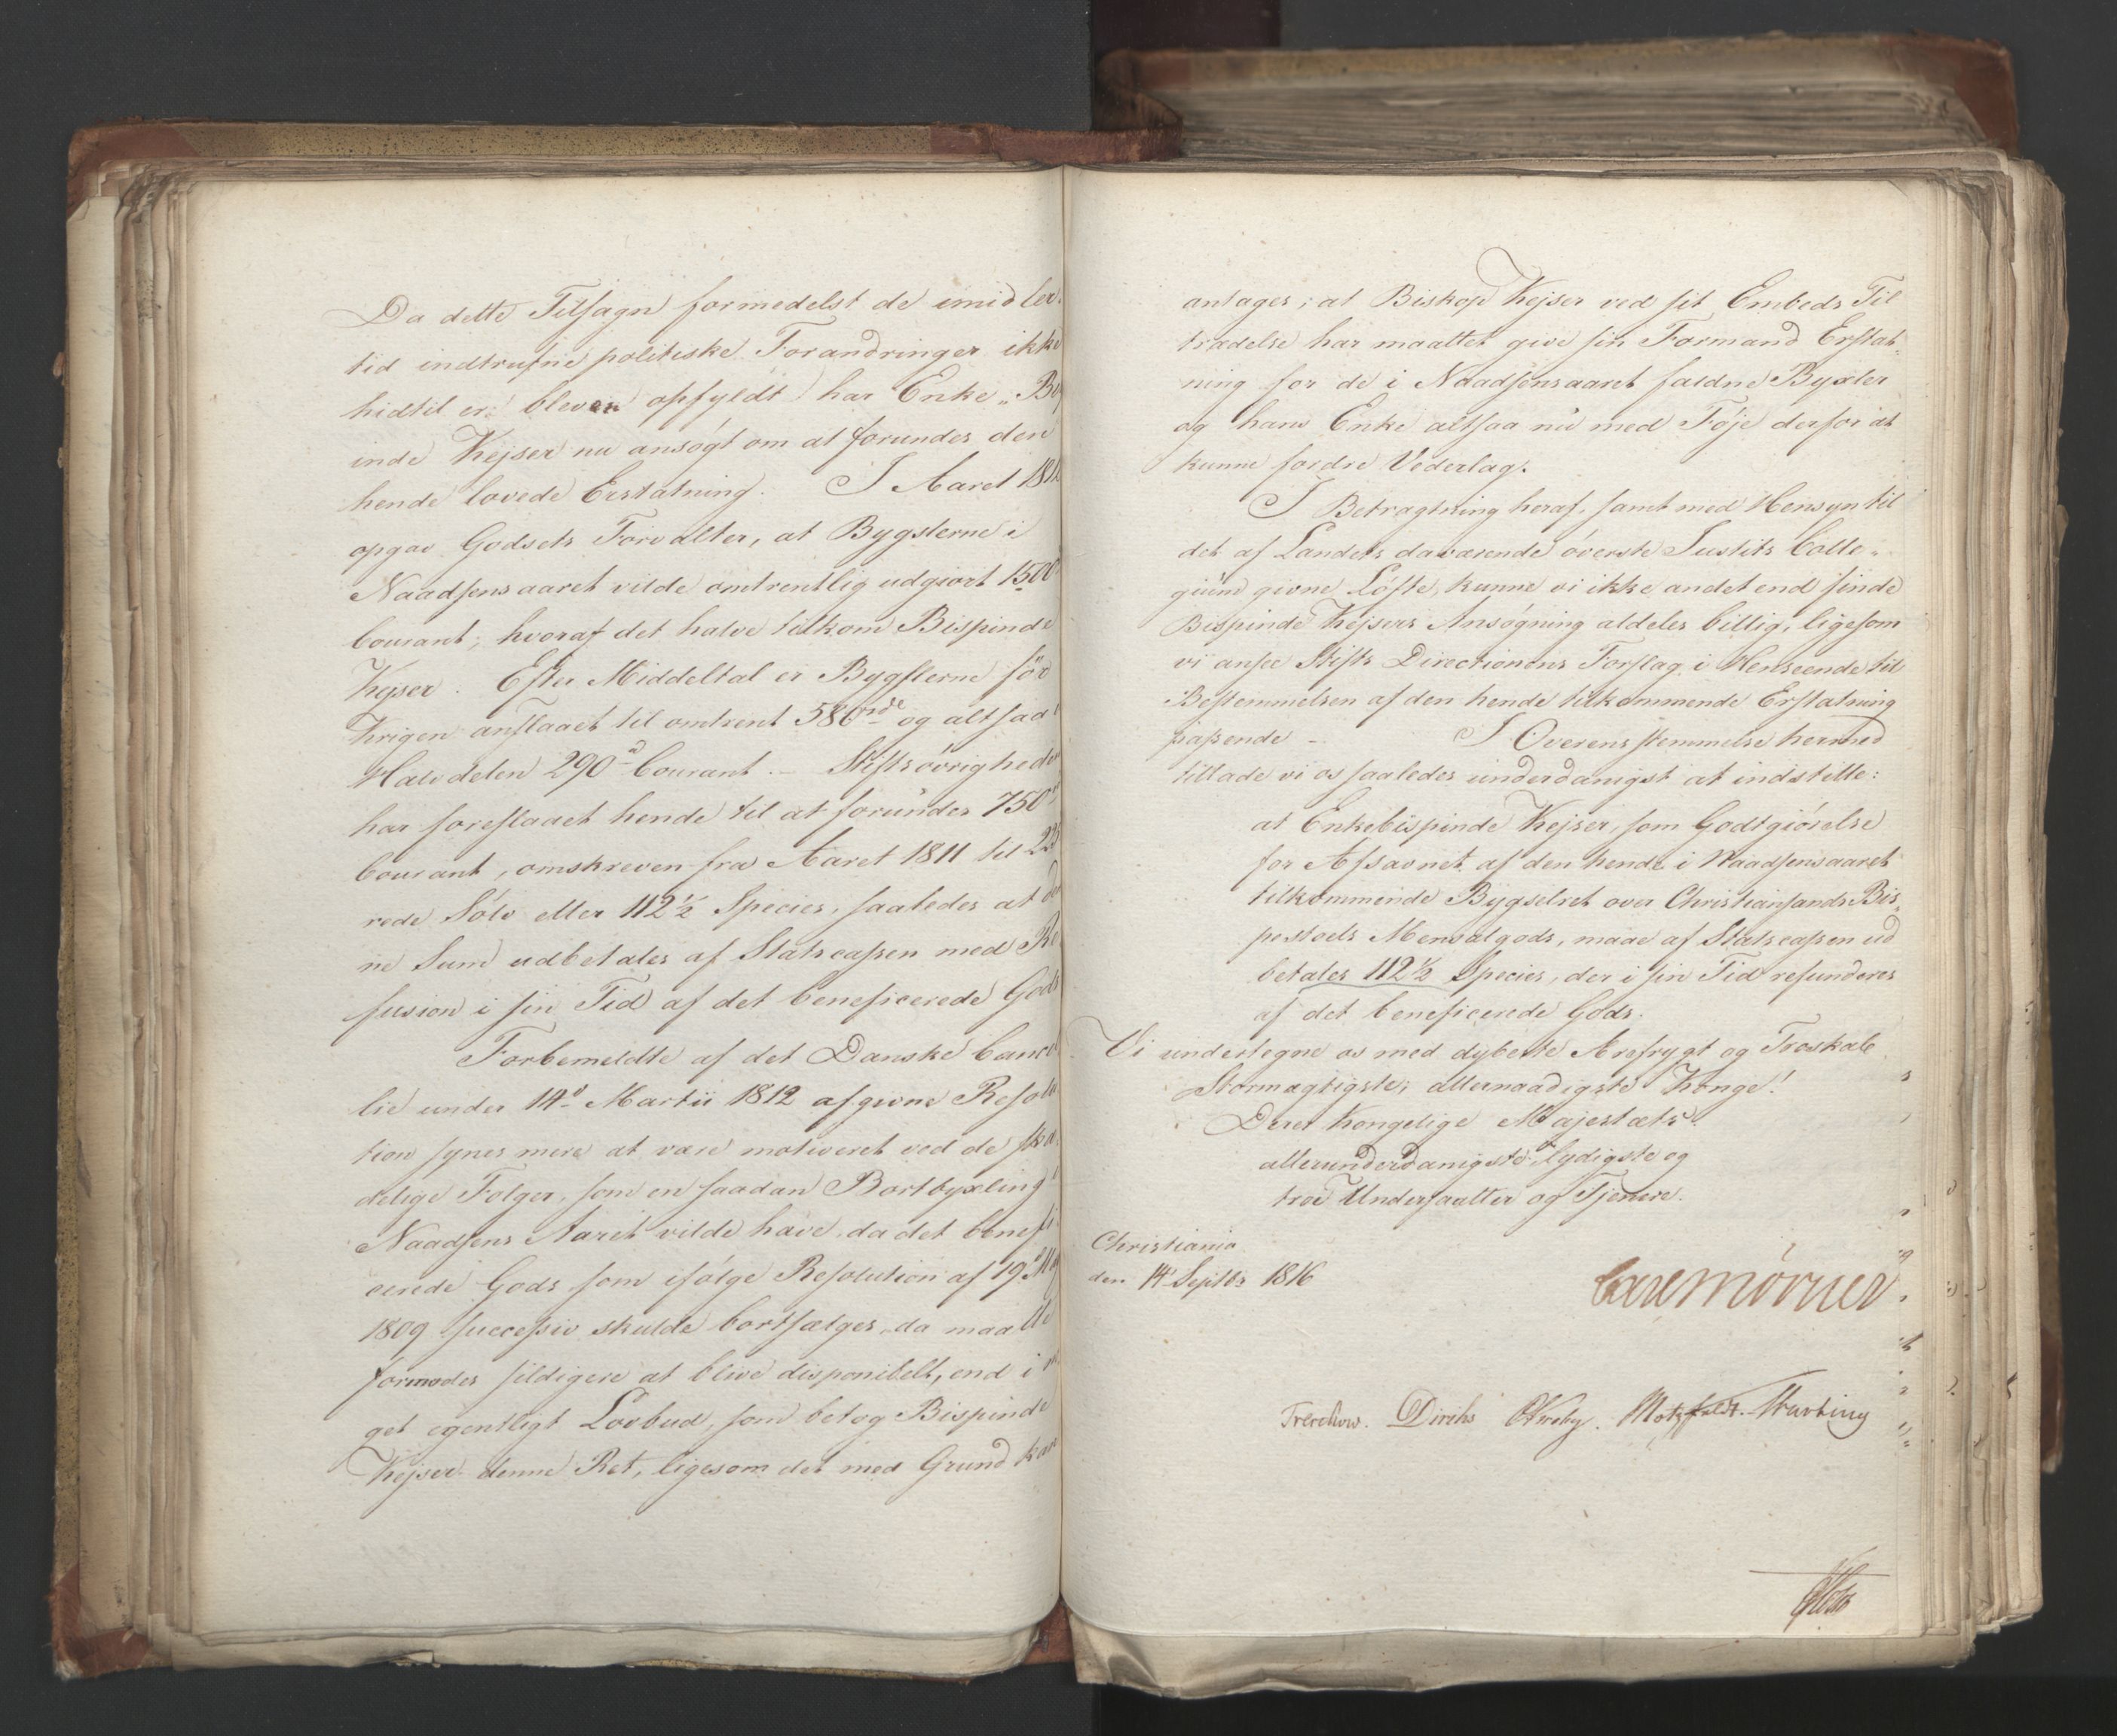 Da dette Tilsagn formedelst de imidler
tid indtrufne politiske Forandringer ikke
hidtil er bleven opfyldt har Enke-
inde Kejser nu ansøgt om at forundes den
hende lovede Erstatning. I Aaret 181
opgav Godsets Forvalter, at Bygslerne i
Naadsensaaret vilde omtrentlig udgiort 1500
Courant, hvoraf det halve tilkom Bispinde
Kejser. Efter Middeltal er Bygslerne før
Krigen anslaaet til omtrent 580 rde og altsaa
Halvdelen 290 d Courant. - Stiftsøvrigheden
har foreslaaet hende til at forundes 750
Courant, omskreven fra Aaret 1811 til 225
rede Sølv eller 112½ Species, saaledes at den
ne Sum udbetales af Statscassen med Re
fusion i sin Tid af det beneficerede Gods
Forbemeldte af det Danske Cancel
lie under 14d Martii 1812 afgivne Resolu
tion synes mere at være motiveret ved de ska
delige Følger, som en saadan Bortbyxling i
Naadsens Aaret vilde have, da det benefi
cerede Gods som ifølge Resolution af 19d
1809 successiv skulde bortsælges, da maatte
formodes sildigere at blive disponibelt, end i no
get egentligt Lovbud, som betog Bispinde
Kejser denne Ret, ligesom det med Grund kan
antages, at Biskop Kejser ved sit Embeds Til
trædelse har maattet give sin Formand Erstat-
ning for de i Naadsensaaret faldne Byxler
og hans Enke altsaa nu med Føje derfor at
kunne fordre Vederlag.
I Betragtning heraf, samt med Hensyn til
det af Landets daværende øverste Justits Colle-
gium givne Løfte, kunne vi ikke andet end finde
Bispinde Kejsers Ansøgning aldeles billig, ligesom
vi ansee Stifts Directionens Forslag i Henseende til
Bestemmelsen af den hende tilkommende Erstatning
passende - I Overensstemmelse hermed
tillade vi os saaledes underdanigst at indstille:
at Enkebispinde Kejser, som Godtgiørelse
for Afsavnet af den hende i Naadsensaaret
tilkommende Bygselret over Christiansands Bis-
pestoels Mensalgods, maae af Statscassen ud
betales 112½ Species, der i sin Tid refunderes
af det beneficerede Gods.
Vi undertegne os med dybeste Ærefrygt og Troskab
Stormægtigste, allernaadigste Konge!
Deres Kongelige Majestæts
allerunderdanigste lydigste og
troe Undersaatter og Tjenere.
Christiania
den 14 Septbr 1816
Carl Mörner
Treschow. Diriks Motzfeldt.